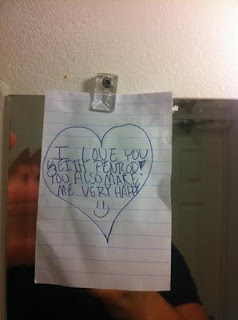 I LOVE YOU
KEITH PEABODY
YOU ALSO MAKE
ME VERY HAPPY